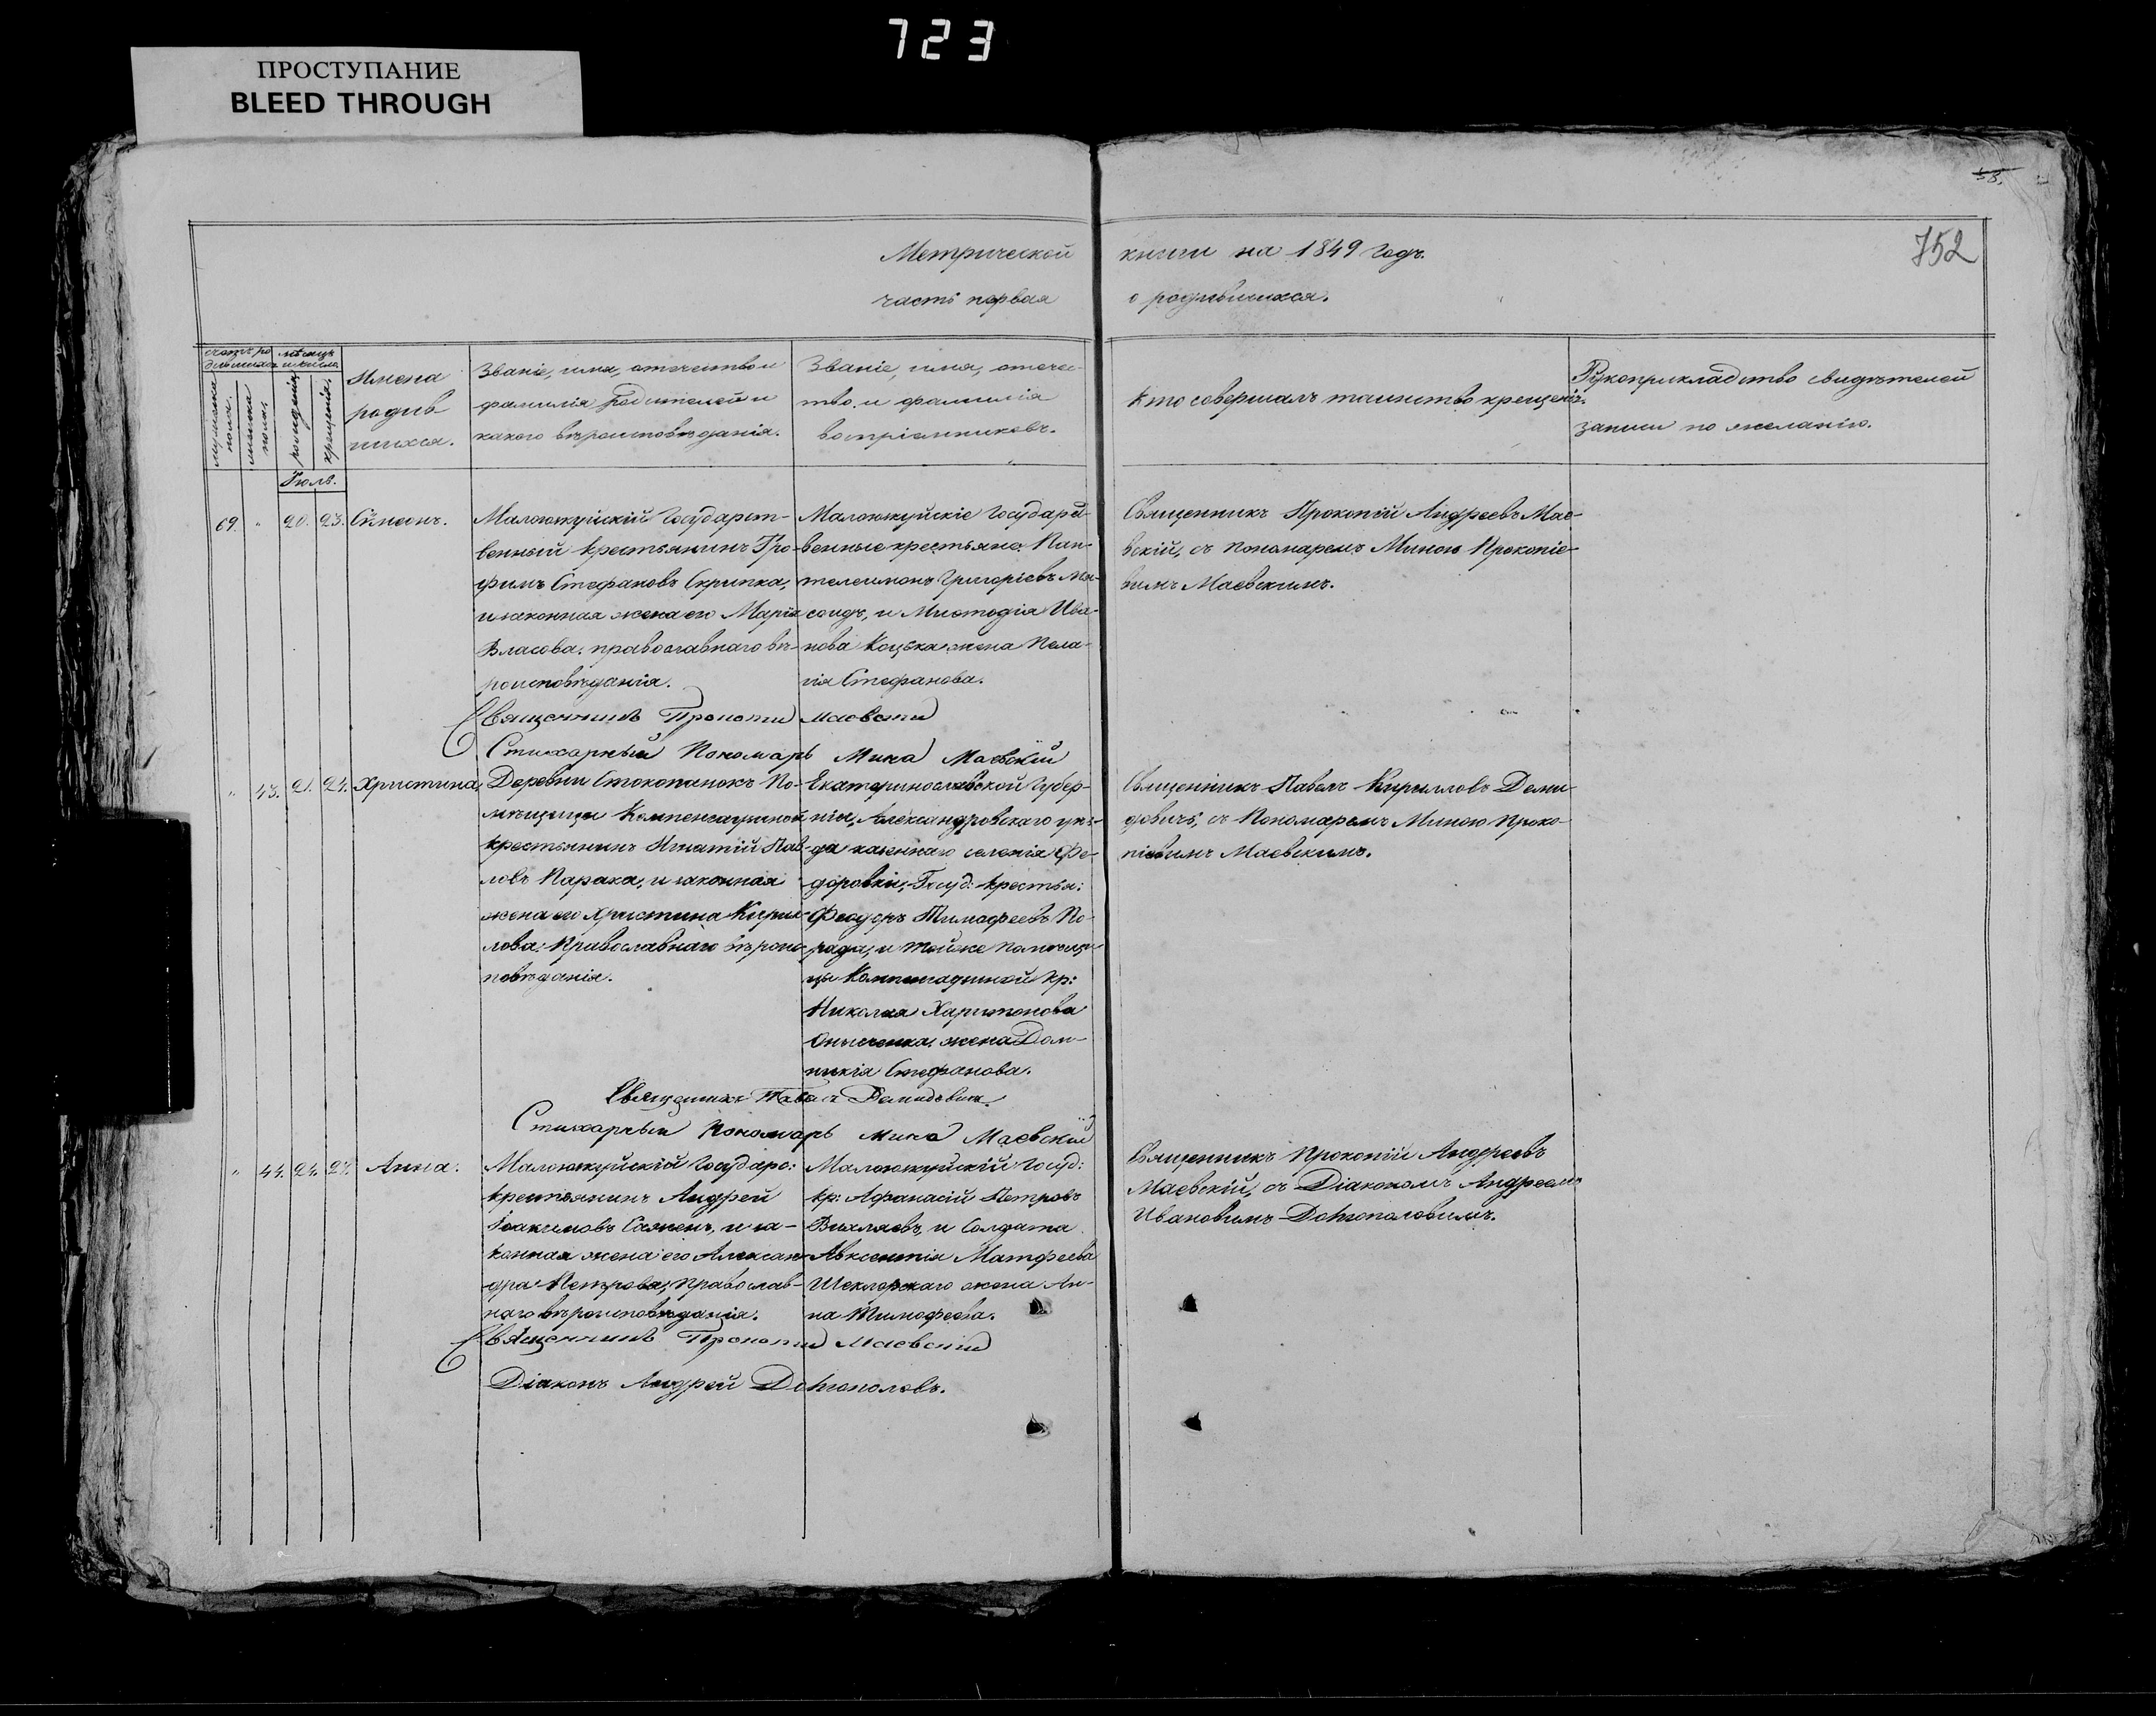 723
ПРОСТУПАНИЕ
BLEED THROUGH
58.
752
Метрической книги на 1849 годъ.
часть первая о родившихся.
счетъ ро
дившихся
мѣсяцъ
и число
мужеска
пола.
женска
пола.
рожденія
крещенія.
Имена
родив
шихся.
Званіе, имя, отчество и
фамилія родителей и
какого вѣроисповѣданія.
Званіе, имя, отчес-
тво и фамилія
воспріемниковъ.
Кто совершалъ таинство крещенія.
Рукоприкладство свидѣтелей
записи по желанію.
Іюль.
69. " 20. 23. Сѵмеонъ.
Маломжуйскій Государст-
венный крестьянинъ Тро-
фимъ Стефановъ Скрипка,
и законная жена его Марія
Власова, православнаго вѣ-
роисповѣданія.
Маломжуйскіе Государст-
венные крестьяне: Пан-
телеимонъ Григоріевъ
и Ива-
нова Коцька жена Пела-
гія Стефанова.
Священникъ Прокопій Андреевъ Мае-
вскій, съ Пономаремъ Миною Прокопіе-
вымъ Маевскимъ.
Священникъ Прокопій Маевскій
Стихарный Пономарь Мина Маевскій
" 43. 21. 24. Христина.
Деревни Стокопанокъ По-
мѣщицы
крестьянинъ Игнатій Пав-
ловъ Парака, и законная
жена его Христина Кирил-
лова: Православнаго вѣроис-
повѣданія.
Екатеринославской Губер-
ніи, Александровскаго уѣз-
да казеннаго селенія Фе-
доровки, Госуд: крестья:
Феодоръ Тимофеевъ По-
рада, и тойже помѣщи-
цы кр:
Николая Харитонова
жена Дом-
никія Стефанова.
Священникъ Павелъ Кирилловъ Деми-
довичъ, съ Пономаремъ Миною Проко-
піевымъ Маевскимъ.
Священникъ Павелъ Демидовичъ
Стихарный Пономарь Мина Маевскій
" 44. 24. 27. Анна.
Маломжуйскій Государс:
крестьянинъ Андрей
Іоакимовъ Саженъ, и за-
конная жена его Алексан-
дра Петрова, Православ-
наго вѣроисповѣданія.
Маломжуйскій Госуд:
кр: Афанасій Петровъ
Вихляевъ, и Солдата
Авксентія Матфеева
жена Ан-
на Тимофеева.
Священникъ Прокопій Андреевъ
Маевскій, съ Діакономъ Андреемъ
Ивановымъ Долгополовымъ.
Священникъ Прокопій Маевскій
Діаконъ Андрей Долгополовъ.